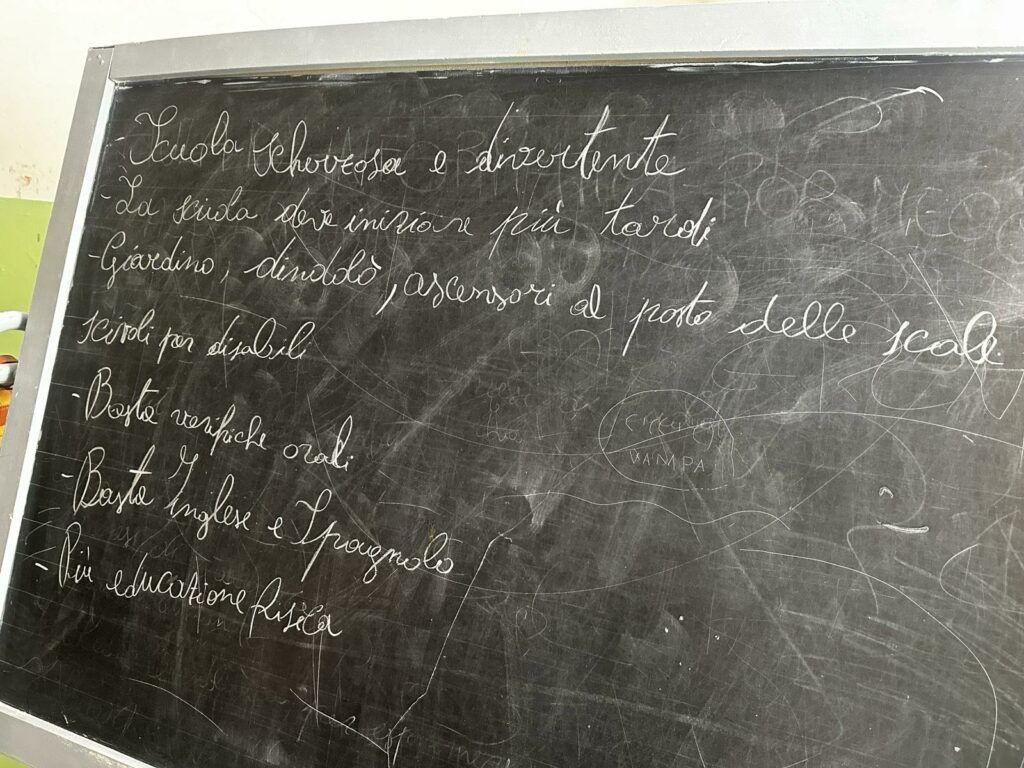 - Scuola scherzosa e divertente
- La scuola deve iniziare più tardi
- Giardino, dindolò, ascensori al posto delle scale
scivoli per disabili
- Basta verifiche orali
- Basta Inglese e Spagnolo
- Più educazione fisica
VAMPA